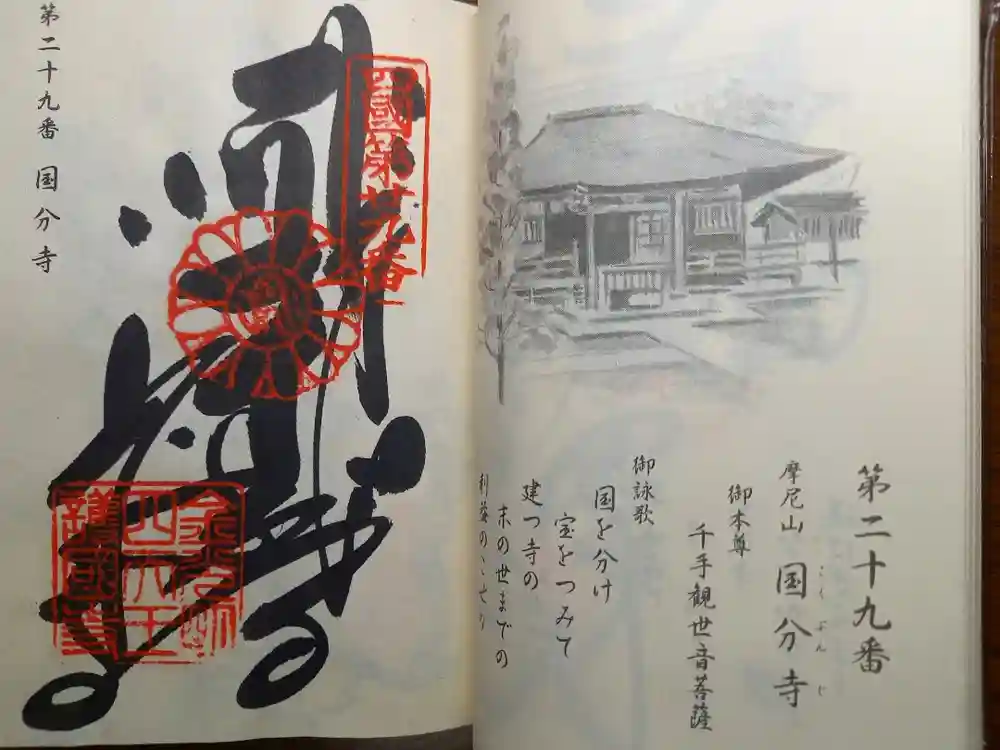 第二十九番
摩尼山 国分寺
こくぶんじ
御本尊
千手観世音菩薩
御詠歌
国を分け
宝をつみて
建つ寺の
末の世までの
利益のこせり
四國第廿九番
金光明
四天王
護國寺
第二十九番 国分寺